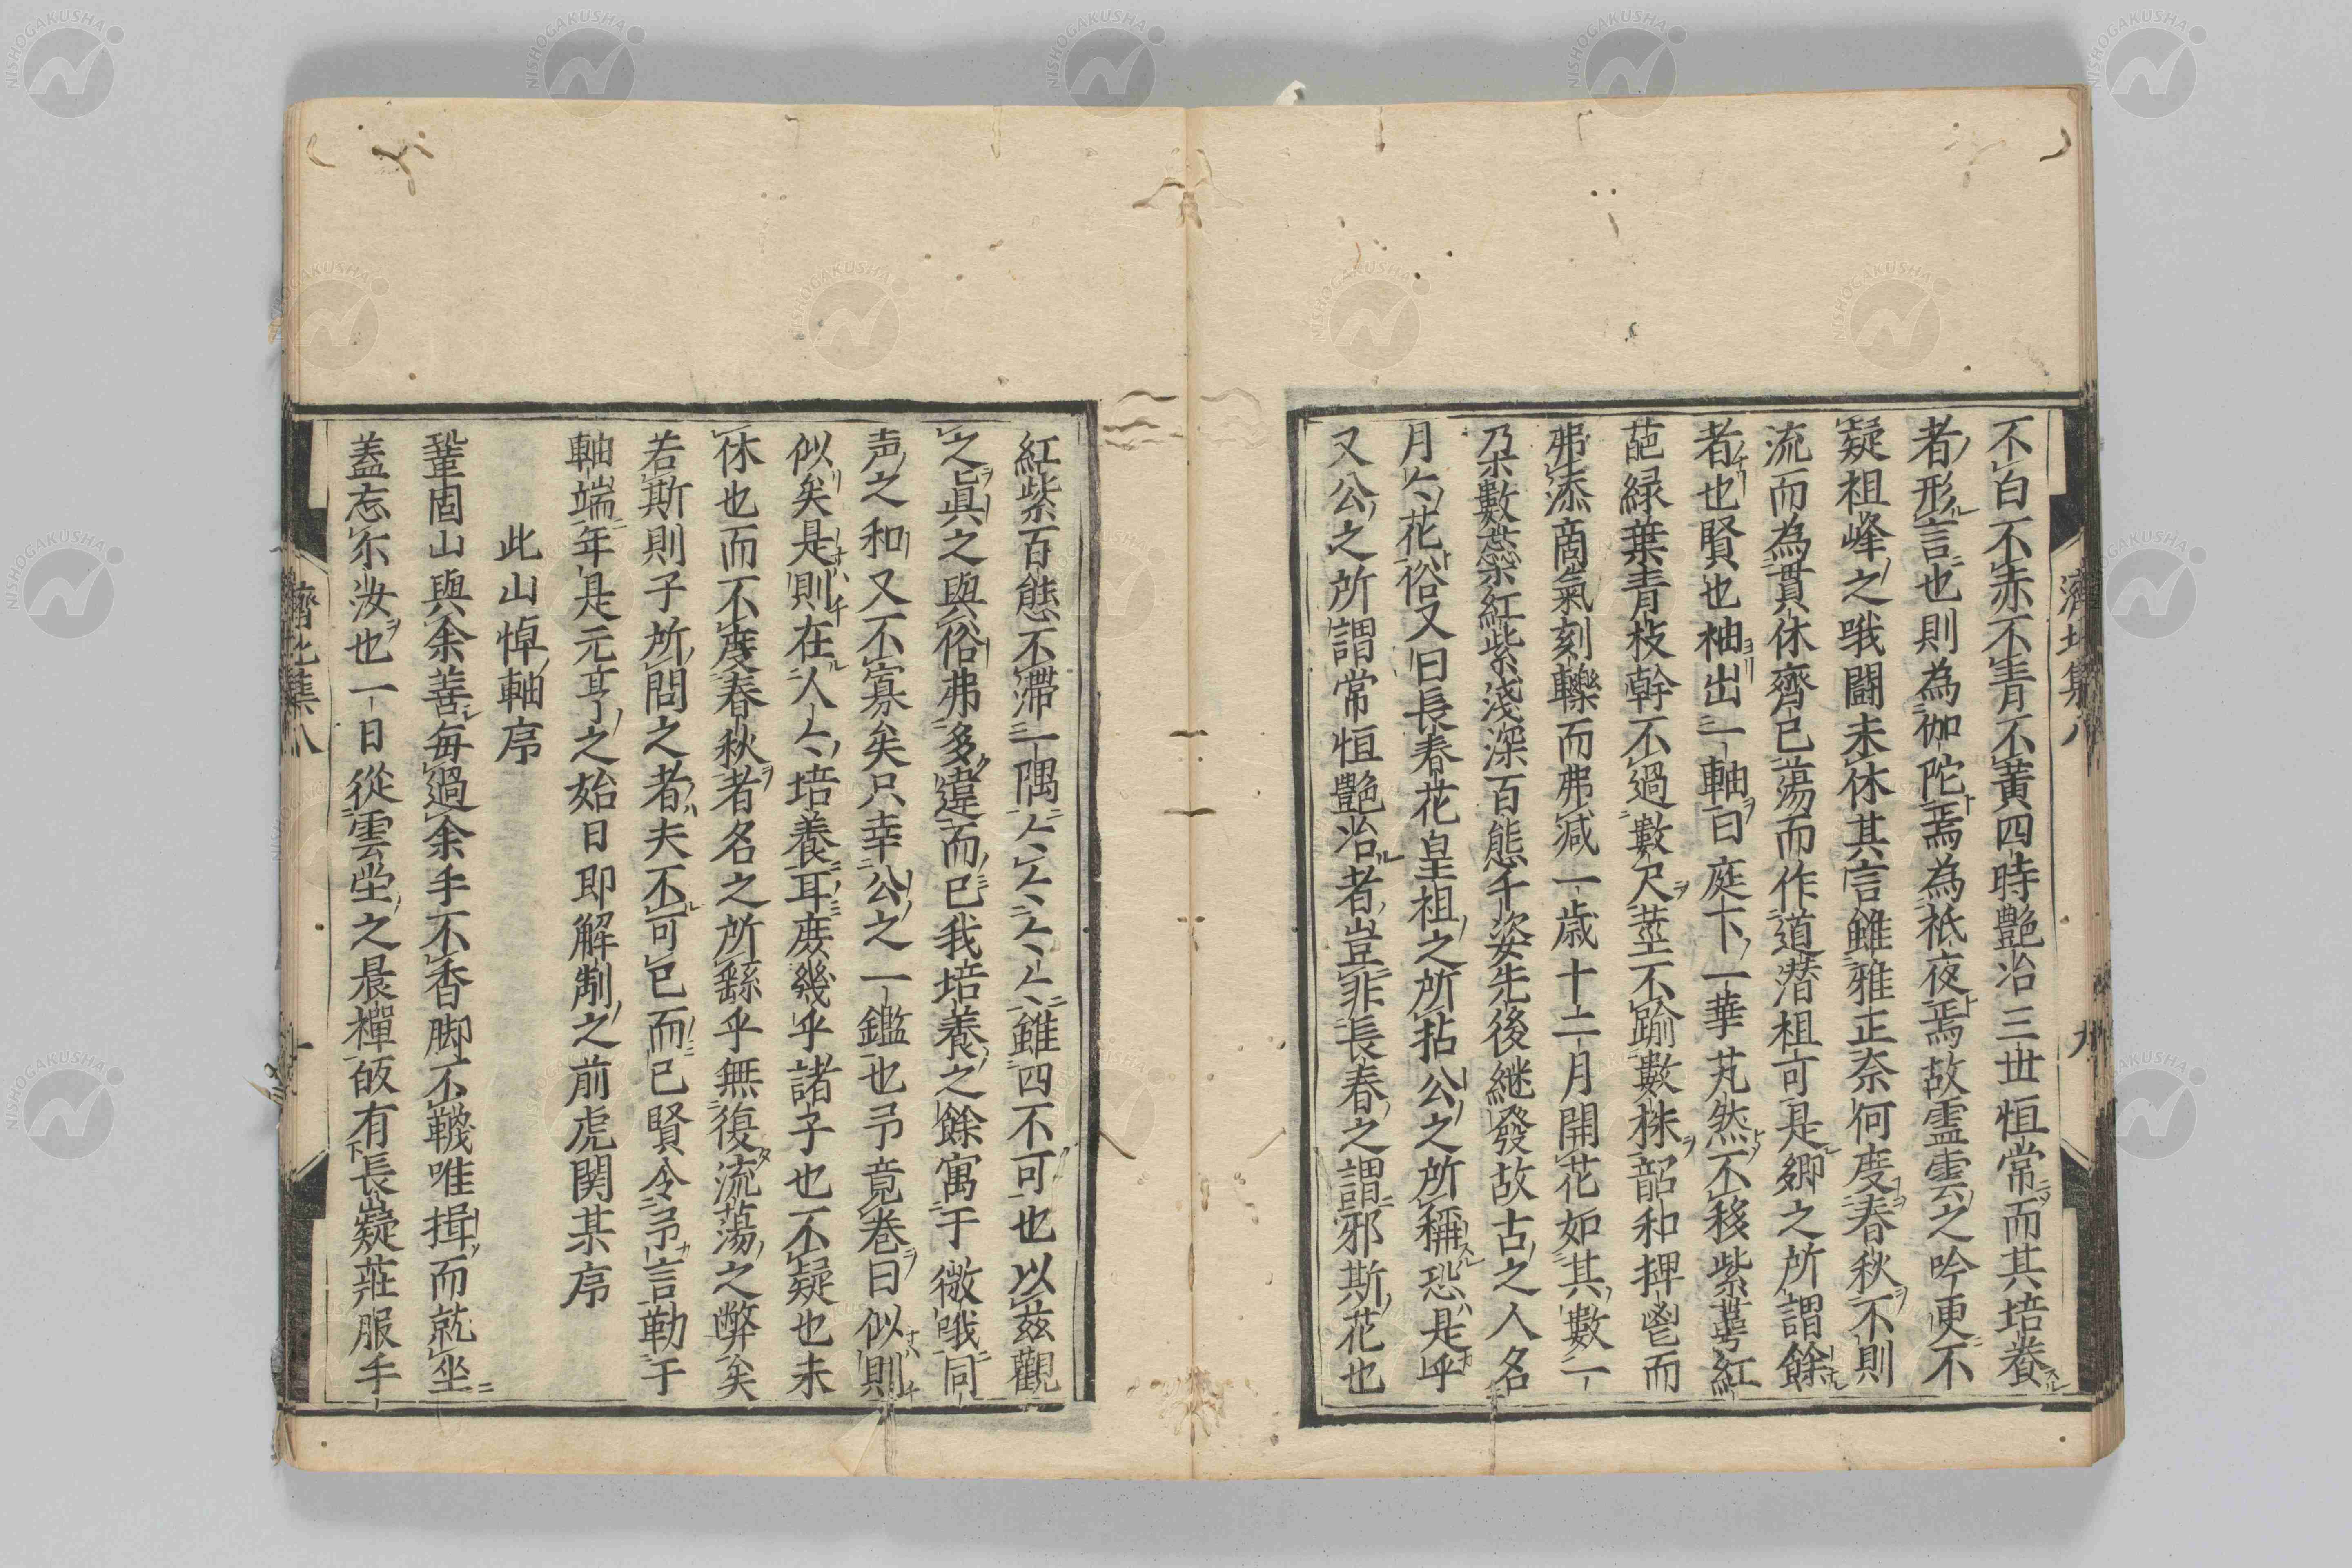 不白不赤不青不黄四時艶冶三丗恒常而其培養
者形言也則為伽陀焉為祇夜焉故霊雲之吟更不
疑祖峰之哦闘未休其言雖雅正奈何度春秋不則
流而為貫休齊已蕩而作道潜祖可是郷之所謂餘
者也賢也袖出一軸曰庭下一華芃然不移紫蕚紅
葩緑葉青枝幹不過數尺莖不踰數株韶和捭鬯而
弗添啇氣刻轢而弗减一歳十二月開花如其數一
朶數蘂紅紫淺深百態千姿先後継發故古之人名
月〻花俗又曰長春花皇祖之所拈公之所稱恐是乎
又公之所謂常恒艶冶者豈非長春之謂邪斯花也
紅紫百態不滯一隅〻〻〻〻〻雖四不可也以兹觀
之眞之與俗弗多違而已我培養之餘寓于微哦同
声之和又不寡矣只幸公之一鑑也予竟巻曰似則
似矣是則在人〻培養耳庻幾乎諸子也不疑也未
休也而不度春秋者名之所繇乎無復流蕩之弊矣
若斯則子所問之者夫不可已而已賢令予言勒于
軸端年是元亨之始日即解制之前虎関某序
此山悼軸序
鞏固山與余善毎過余手不香脚不韈唯揖而就坐
蓋忘尓汝也一日從雲堂之晨襌皈有長嶷莊服手
濟北集八
九
濟北集八